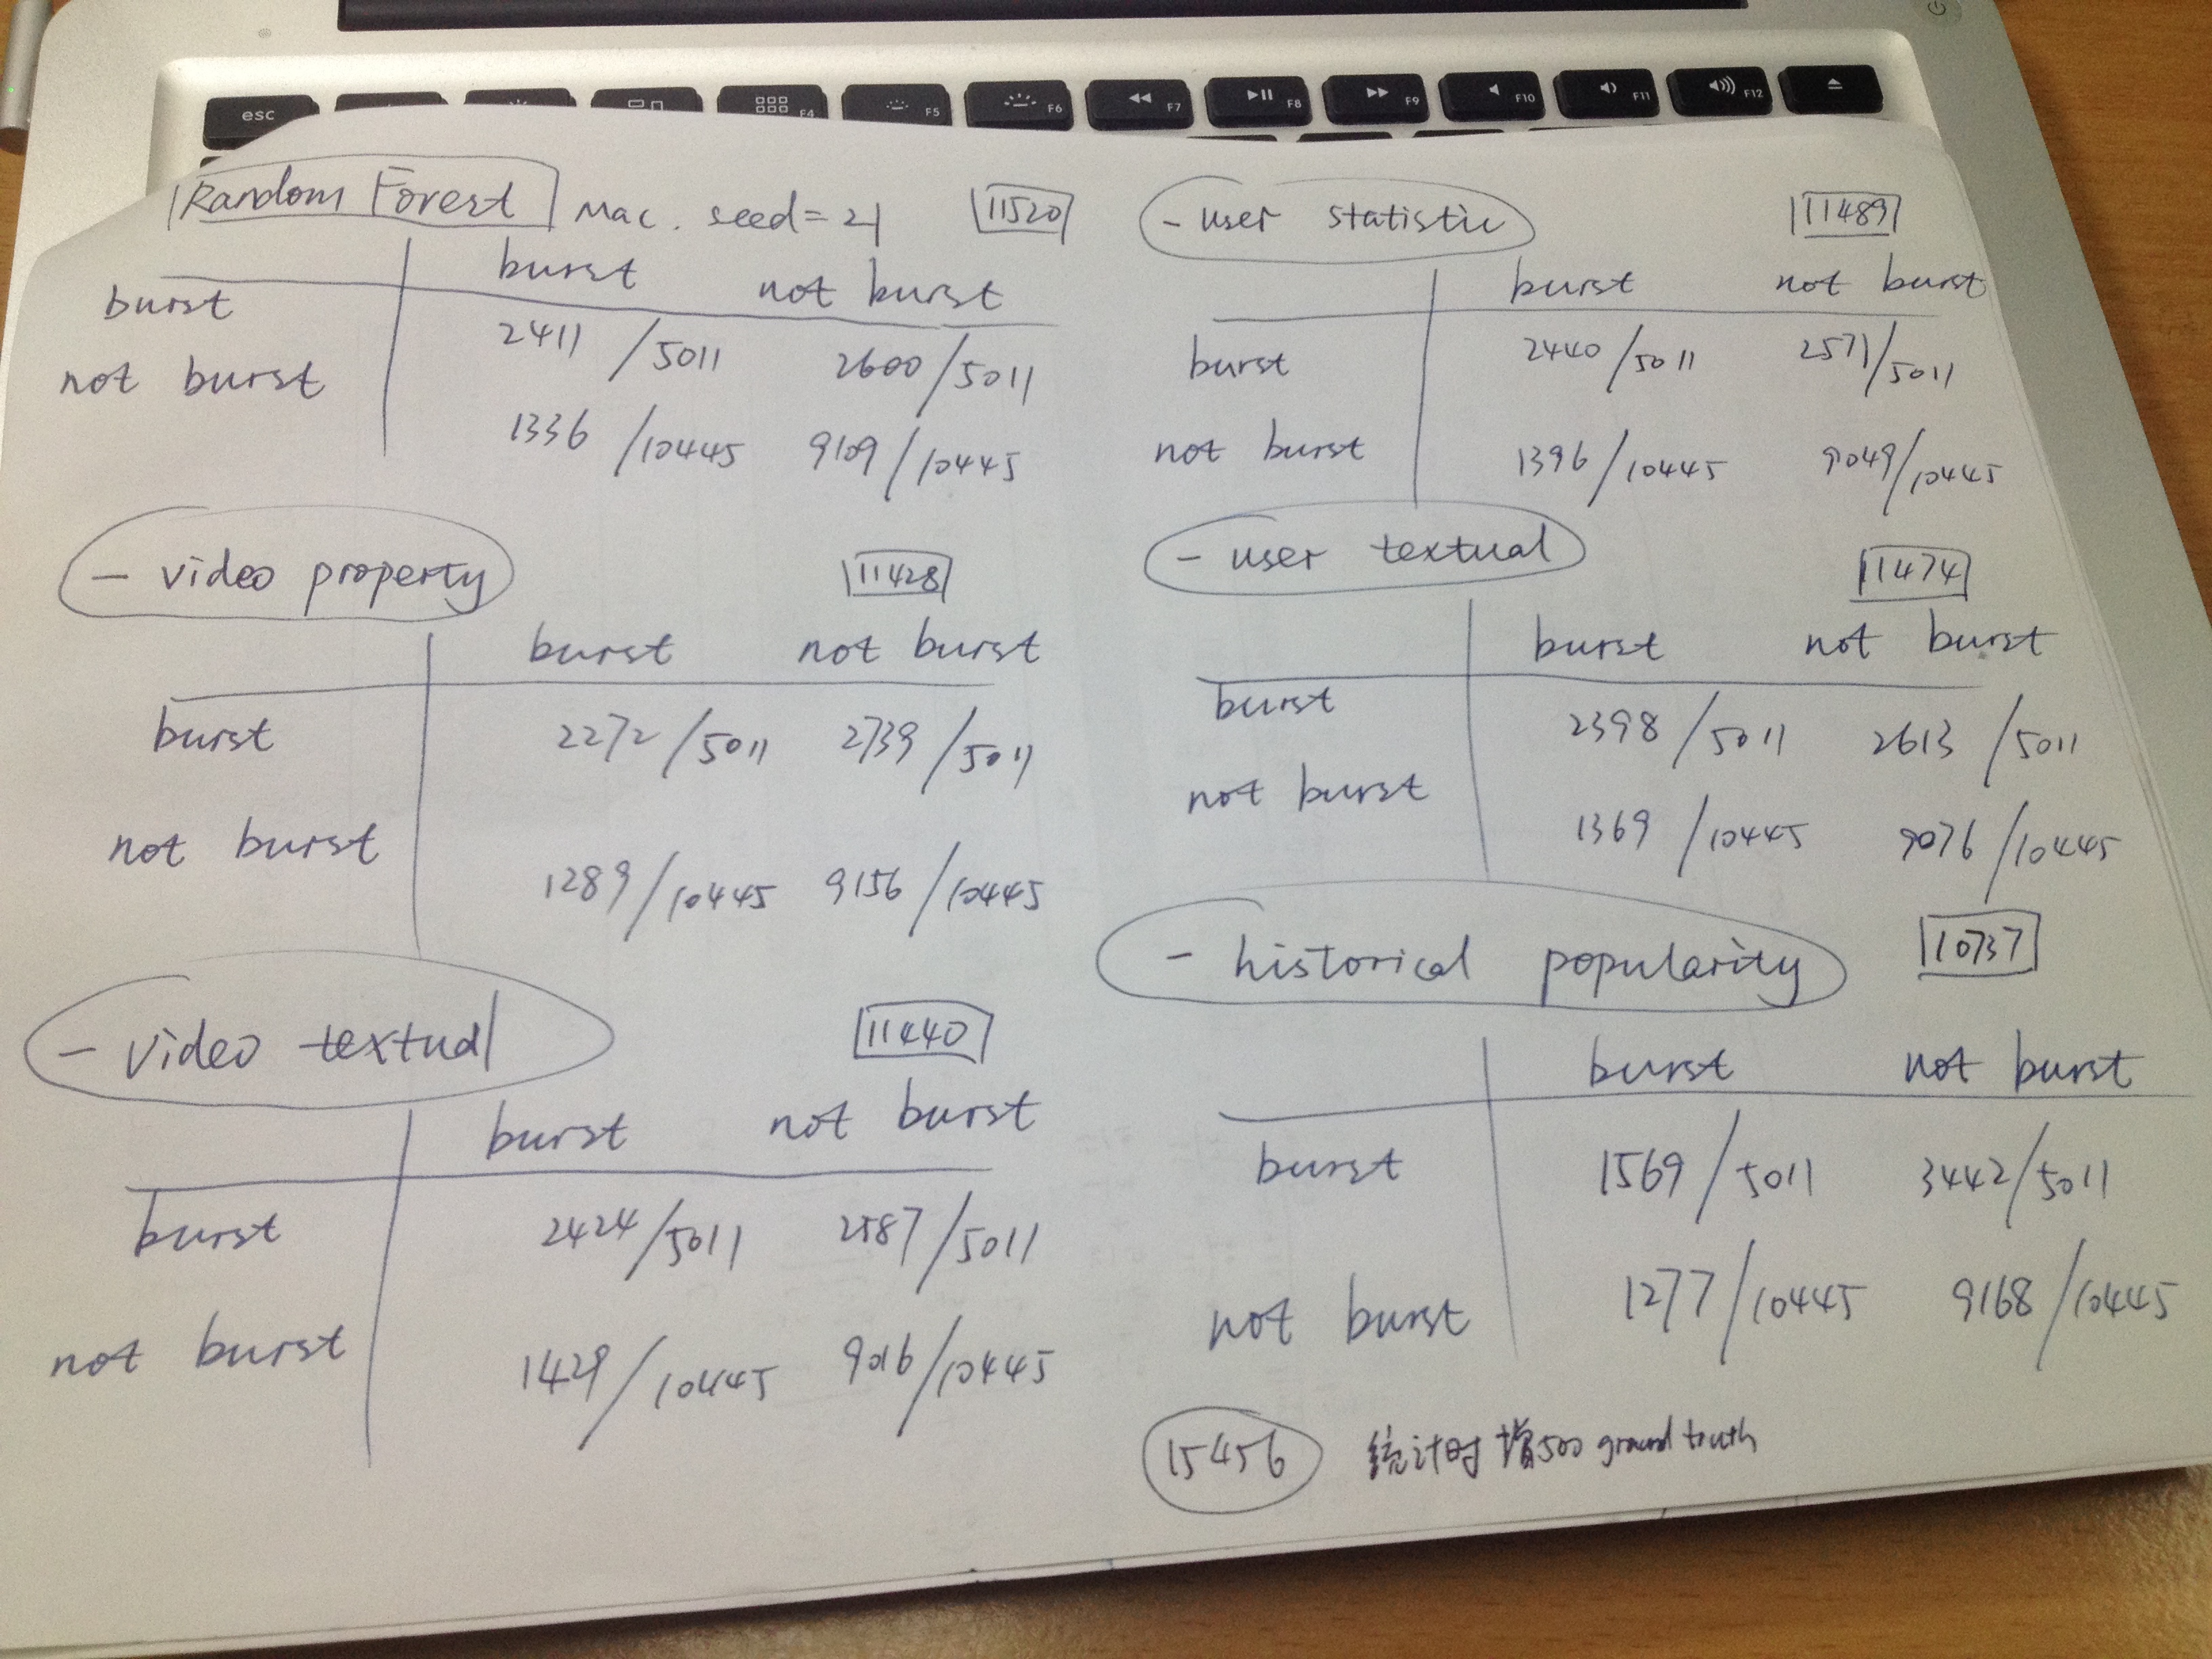 esc F4 F5 F6 F7 F8 F9 F10 F11 F12
Random Forest Mac. seed=21 11520
burst not burst
burst 2411/5011 2600/5011
not burst 1336/10445 9109/10445
- video property 11428
burst not burst
burst 2272/5011 2739/5011
not burst 1289/10445 9156/10445
- video textual 11440
burst not burst
burst 2424/5011 2587/5011
not burst 1429/10445 9016/10445
- user statistic 11489
burst not burst
burst 2440/5011 2571/5011
not burst 1396/10445 9049/10445
- user textual 11474
burst not burst
burst 2398/5011 2613/5011
not burst 1369/10445 9076/10445
- historical popularity 10737
burst not burst
burst 1569/5011 3442/5011
not burst 1277/10445 9168/10445
15456 统计时增500 ground truth